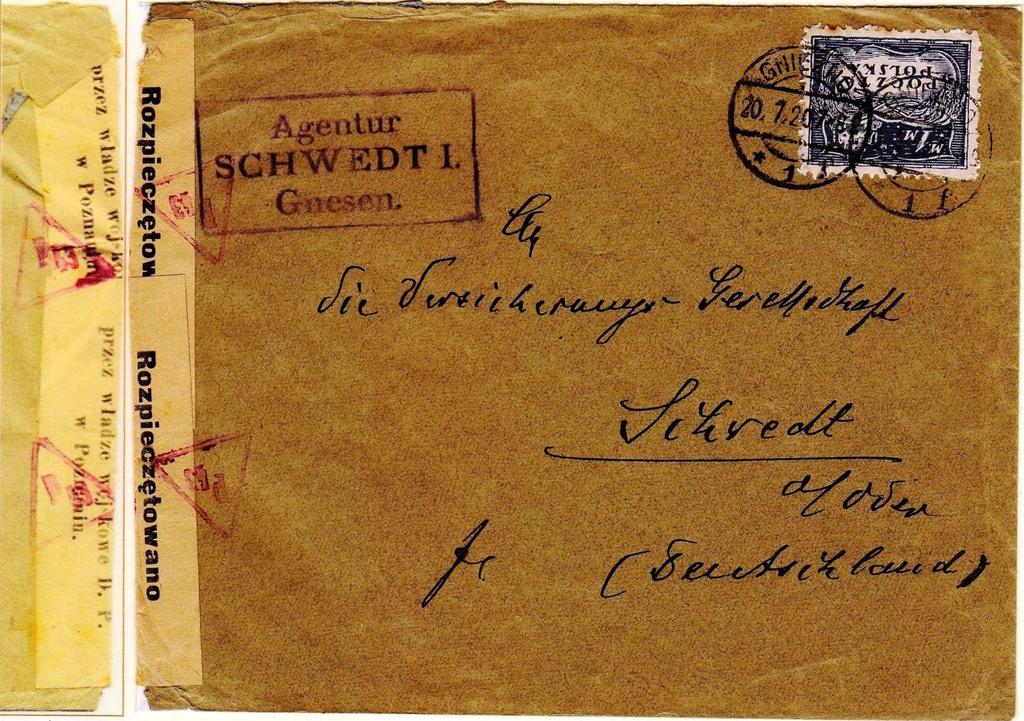 przez władze wojsko
w Poznaniu
przez władze wojskowe D. P.
w Poznaniu.
Rozpieczętow
Rozpieczętowano
Agentur
SCHWEDT I.
Gnesen.
GNIE
20. 7. 20
* 1 f
1 f
POCZTA
POLSKA
1M
An
die Versicherungs-Gesellschaft
Schwedt
a/Oder
(Deutschland)